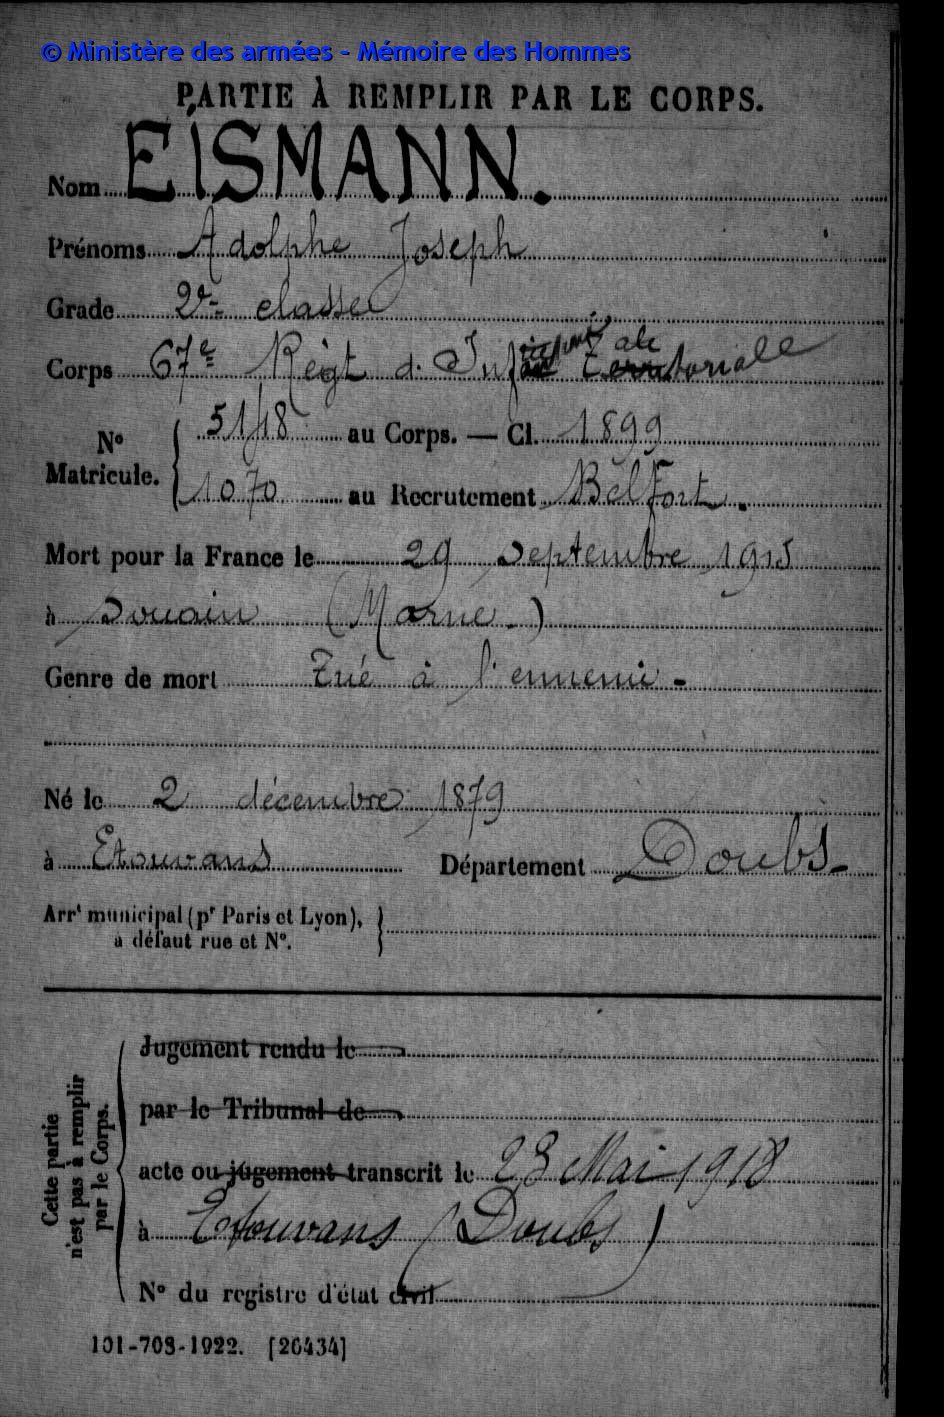 © Ministère des armées - Mémoire des Hommes
PARTIE À REMPLIR PAR LE CORPS.
Nom EISMANN.
Prénoms Adolphe Joseph
Grade 2e classe
Corps 67e Régt d. Inf Territoriale
N° Matricule. 5148 au Corps. — Cl. 1899
1070 au Recrutement Belfort.
Mort pour la France le 29 Septembre 1915
à Souain (Marne.)
Genre de mort Tué à l'ennemi -
Né le 2 décembre 1879
à Etouvans Département Doubs
Arrt municipal (pr Paris et Lyon),
à défaut rue et N°.
Cette partie
n'est pas à remplir
par le Corps.
Jugement rendu le
par le Tribunal de
acte ou jugement transcrit le 23 Mai 1918
à Etouvans (Doubs)
N° du registre d'état civil
101-708-1922. [26434]